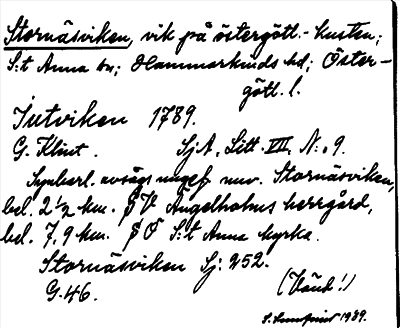 Stornäsviken, vik på östergötl.-kusten;
S:t Anna sn; Hammarkinds hd; Öster-
götl. l.
Jutviken 1789.
G. Klint. Sj.A. Litt. VIII, N:o 9.
Synbarl. avsågs ungef nuv. Stornäsviken,
bel. 2½ km. SV Ängelholms herrgård,
bel. 7,9 km. SÖ S:t Anna kyrka.
Stornäsviken Sj: 252.
G.46. (Vänd!)
1939.